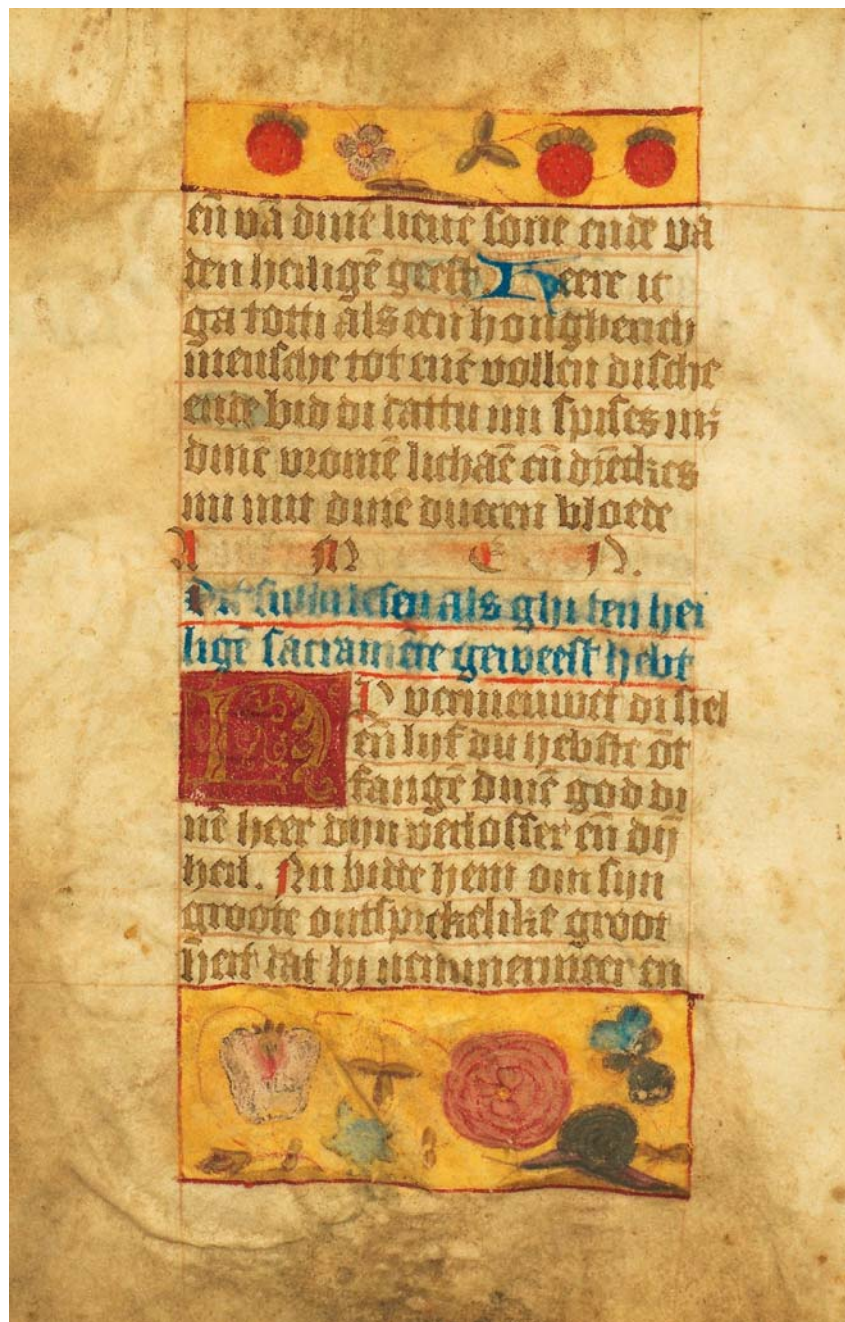 eñ vã dinē lieuē sone ende vā
den heiligē geest Heere ic
ga totti als een hongherich
mensche tot eenē vollen dische
ende bid di dattu mi spises mz
dinē vromē lichaē eñ
mi mit dinē dueren bloede
A M E N.
Dit suldi lesen als ghi ten hei
ligē sacramēte geweest hebt
NV vernieuwet di siel
eñ lijf du hebste ōt
fangē dinē god di
nē heer dijn verlosser eñ dij̄
heil. Nu bidde hem om sijn
groote ontsprekelike groot
heit dat hi nemmermeer en